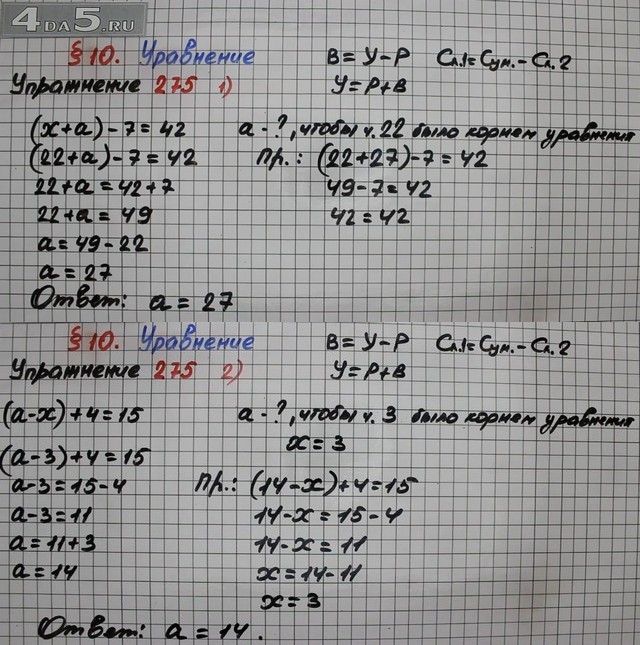 4DA5.RU
§ 10. Уравнение
В = У - Р Сл.1 = Сум. - Сл.2
Упражнение 275 1)
У = Р + В
(x + a) - 7 = 42
a - ?, чтобы ч. 22 было корнем уравнения
(22 + a) - 7 = 42
Пр.: (22 + 27) - 7 = 42
22 + a = 42 + 7
49 - 7 = 42
22 + a = 49
42 = 42
a = 49 - 22
a = 27
Ответ: a = 27
§ 10. Уравнение
В = У - Р Сл.1 = Сум. - Сл.2
Упражнение 275 2)
У = Р + В
(a - x) + 4 = 15
a - ?, чтобы ч. 3 было корнем уравнения
x = 3
(a - 3) + 4 = 15
a - 3 = 15 - 4
Пр.: (14 - x) + 4 = 15
a - 3 = 11
14 - x = 15 - 4
a = 11 + 3
14 - x = 11
a = 14
x = 14 - 11
x = 3
Ответ: a = 14.